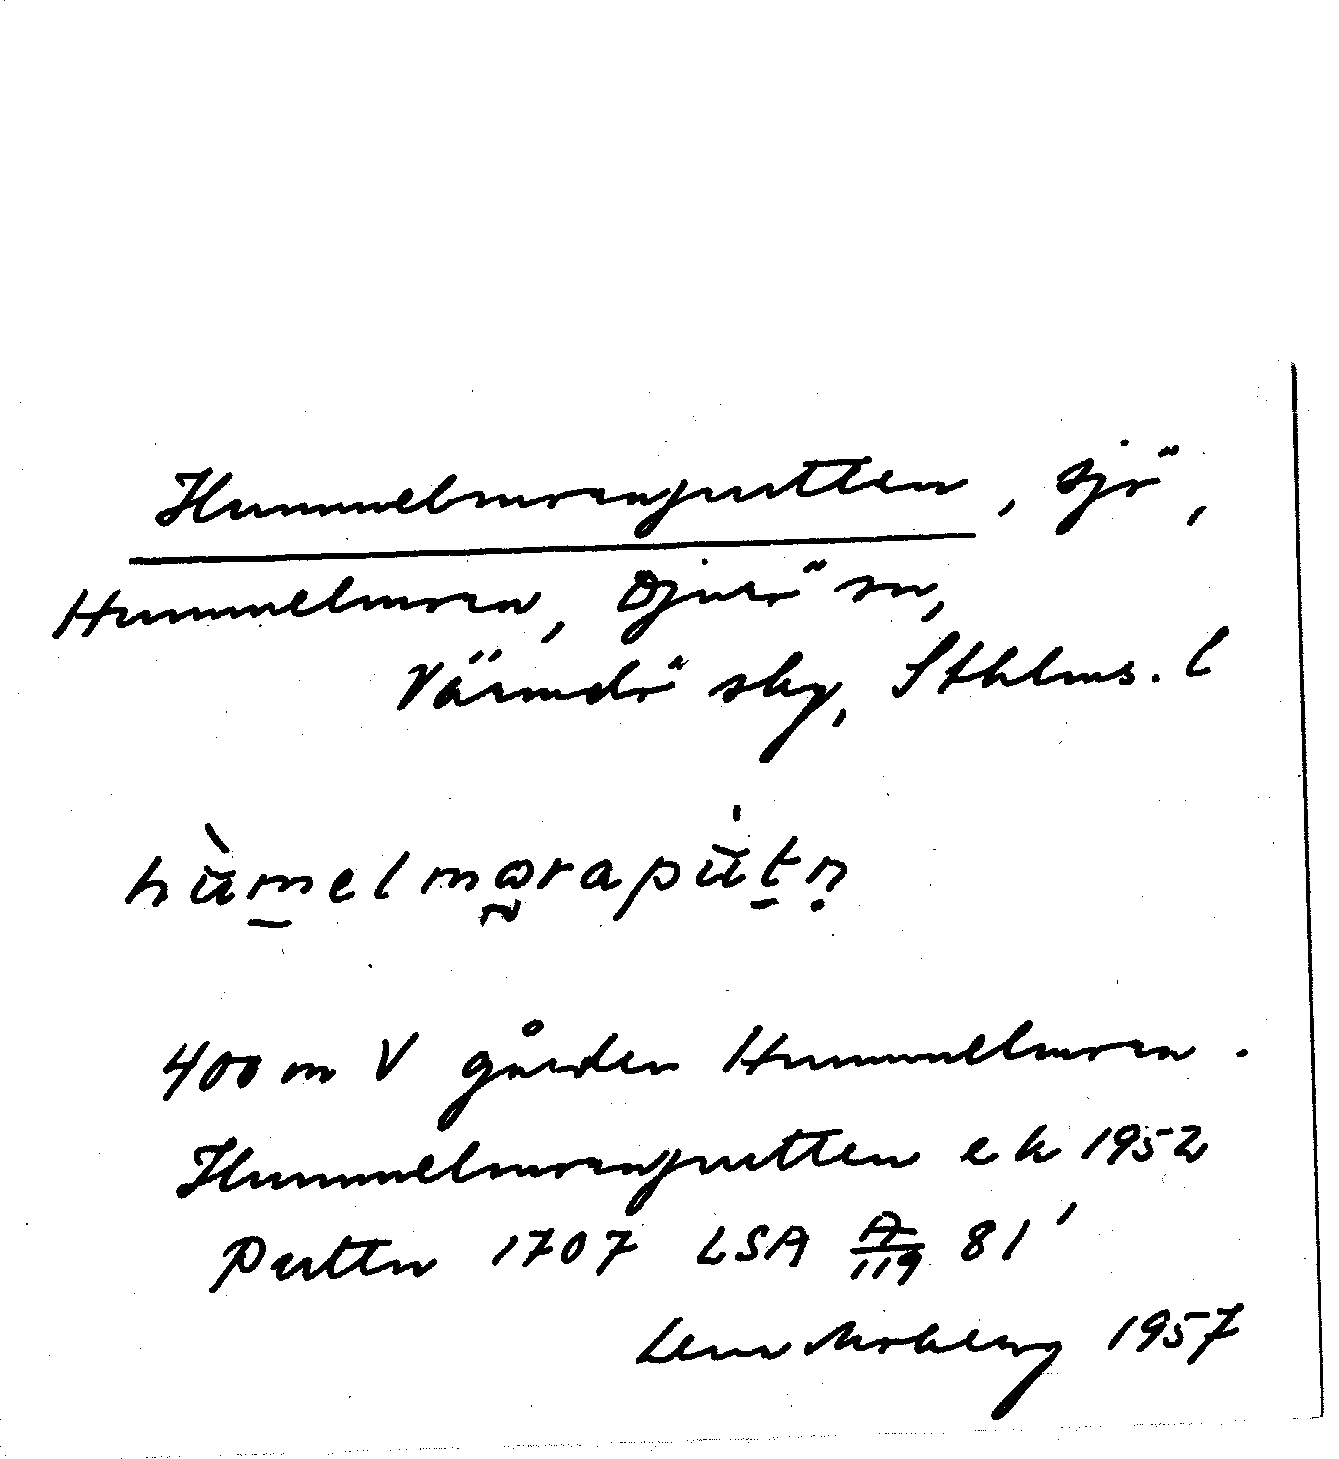 Hummelmoraputten, sjö,
Hummelmora, Djurö sn,
Värmdö skg, Sthlms. l
hùmelmorapútṇ
400 m V gården Hummelmora.
Hummelmoraputten ek 1952
Putten 1707 LSA A/119 81'
Lena Moberg 1957